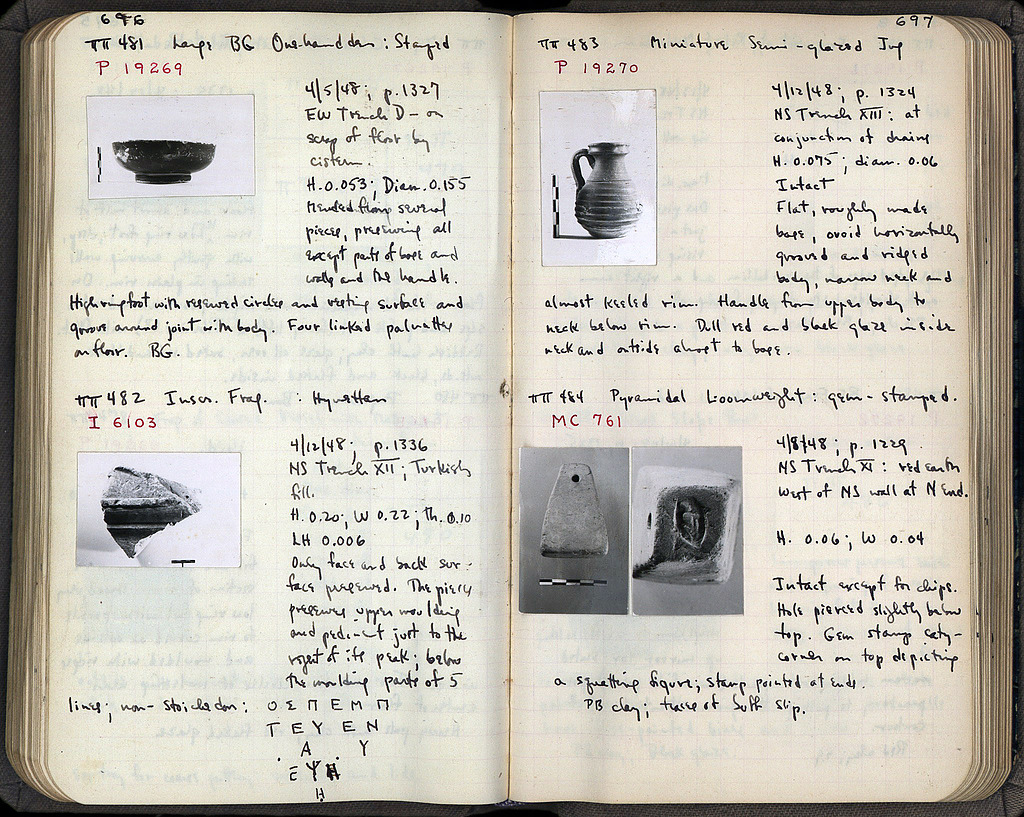 696
ΠΠ 481 Large BG One-handler: Stamped
P 19269
4/5/48; p. 1327
EW Trench D – on
scrap of floor by
cistern.
H. 0.053; Diam. 0.155
Mended from several
pieces, preserving all
except parts of base and
walls and the handle.
High ring foot with reserved circles and resting surface and
groove around joint with body. Four linked palmettes
on floor. BG.
ΠΠ 482 Inscr. Frag. : Hymettian
I 6103
4/12/48; p. 1336
NS Trench XII; Turkish
fill.
H. 0.20; W 0.22; th. 0.10
LH 0.006
Only face and back sur-
face preserved. The piece
preserves upper moulding
and pediment just to the
right of its peak; below
the moulding parts of 5
lines; non-stoichedon: Ο Σ Π Ε Μ Π
Τ Ε Υ Ε Ν
Α Υ
Ε Υ
Η
697
ΠΠ 483 Miniature Semi-glazed Jug
P 19270
4/12/48; p. 1324
NS Trench XIII: at
conjunction of drains
H. 0.075; diam. 0.06
Intact
Flat, roughly made
base, ovoid horizontally
grooved and ridged
body, narrow neck and
almost keeled rim. Handle from upper body to
neck below rim. Dull red and black glaze inside
neck and outside almost to base.
ΠΠ 484 Pyramidal Loomweight: gem-stamped.
MC 761
4/8/48; p. 1229
NS Trench XI: red earth
West of NS wall at N End.
H. 0.06; W 0.04
Intact except for chips.
Hole pierced slightly below
top. Gem stamp caty-
corner on top depicting
a squatting figure; stamp pointed at ends.
PB clay; traces of buff slip.